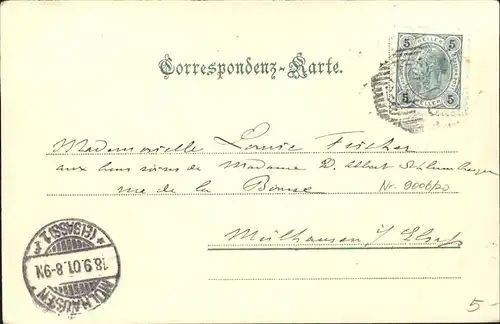 5 HELLER 5
5 HELLER 5
Correspondenz-Karte.
Mademoiselle Louise Fischer
aux bons soins de Madame D. Albert Schlumberger
rue de la Bourse Nr. 9006/20
Mülhausen i/ Elsaß
MÜLHAUSEN
18.9.01.8-9N
* (ELSASS) 1
5-